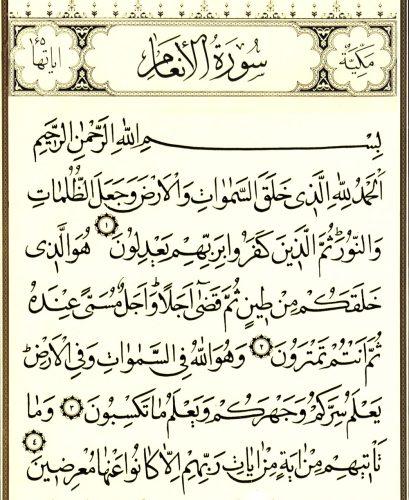 اياتها ١٦٥ سُورَةُ الْأَنْعَامِ مَكِّيَّة
بِسْمِ اللهِ الرَّحْمٰنِ الرَّحِيمِ
اَلْحَمْدُ لِلّٰهِ الَّذِى خَلَقَ السَّمٰوَاتِ وَالْاَرْضَ وَجَعَلَ الظُّلُمَاتِ
وَالنُّورَ ثُمَّ الَّذِينَ كَفَرُوا بِرَبِّهِمْ يَعْدِلُونَ ١ هُوَ الَّذِى
خَلَقَكُمْ مِنْ طِينٍ ثُمَّ قَضٰى اَجَلًا وَاَجَلٌ مُسَمًّى عِنْدَهُ
ثُمَّ اَنْتُمْ تَمْتَرُونَ ٢ وَهُوَ اللهُ فِى السَّمٰوَاتِ وَفِى الْاَرْضِ
يَعْلَمُ سِرَّكُمْ وَجَهْرَكُمْ وَيَعْلَمُ مَا تَكْسِبُونَ ٣ وَمَا
تَأْتِيهِمْ مِنْ اٰيَةٍ مِنْ اٰيَاتِ رَبِّهِمْ اِلَّا كَانُوا عَنْهَا مُعْرِضِينَ ٤